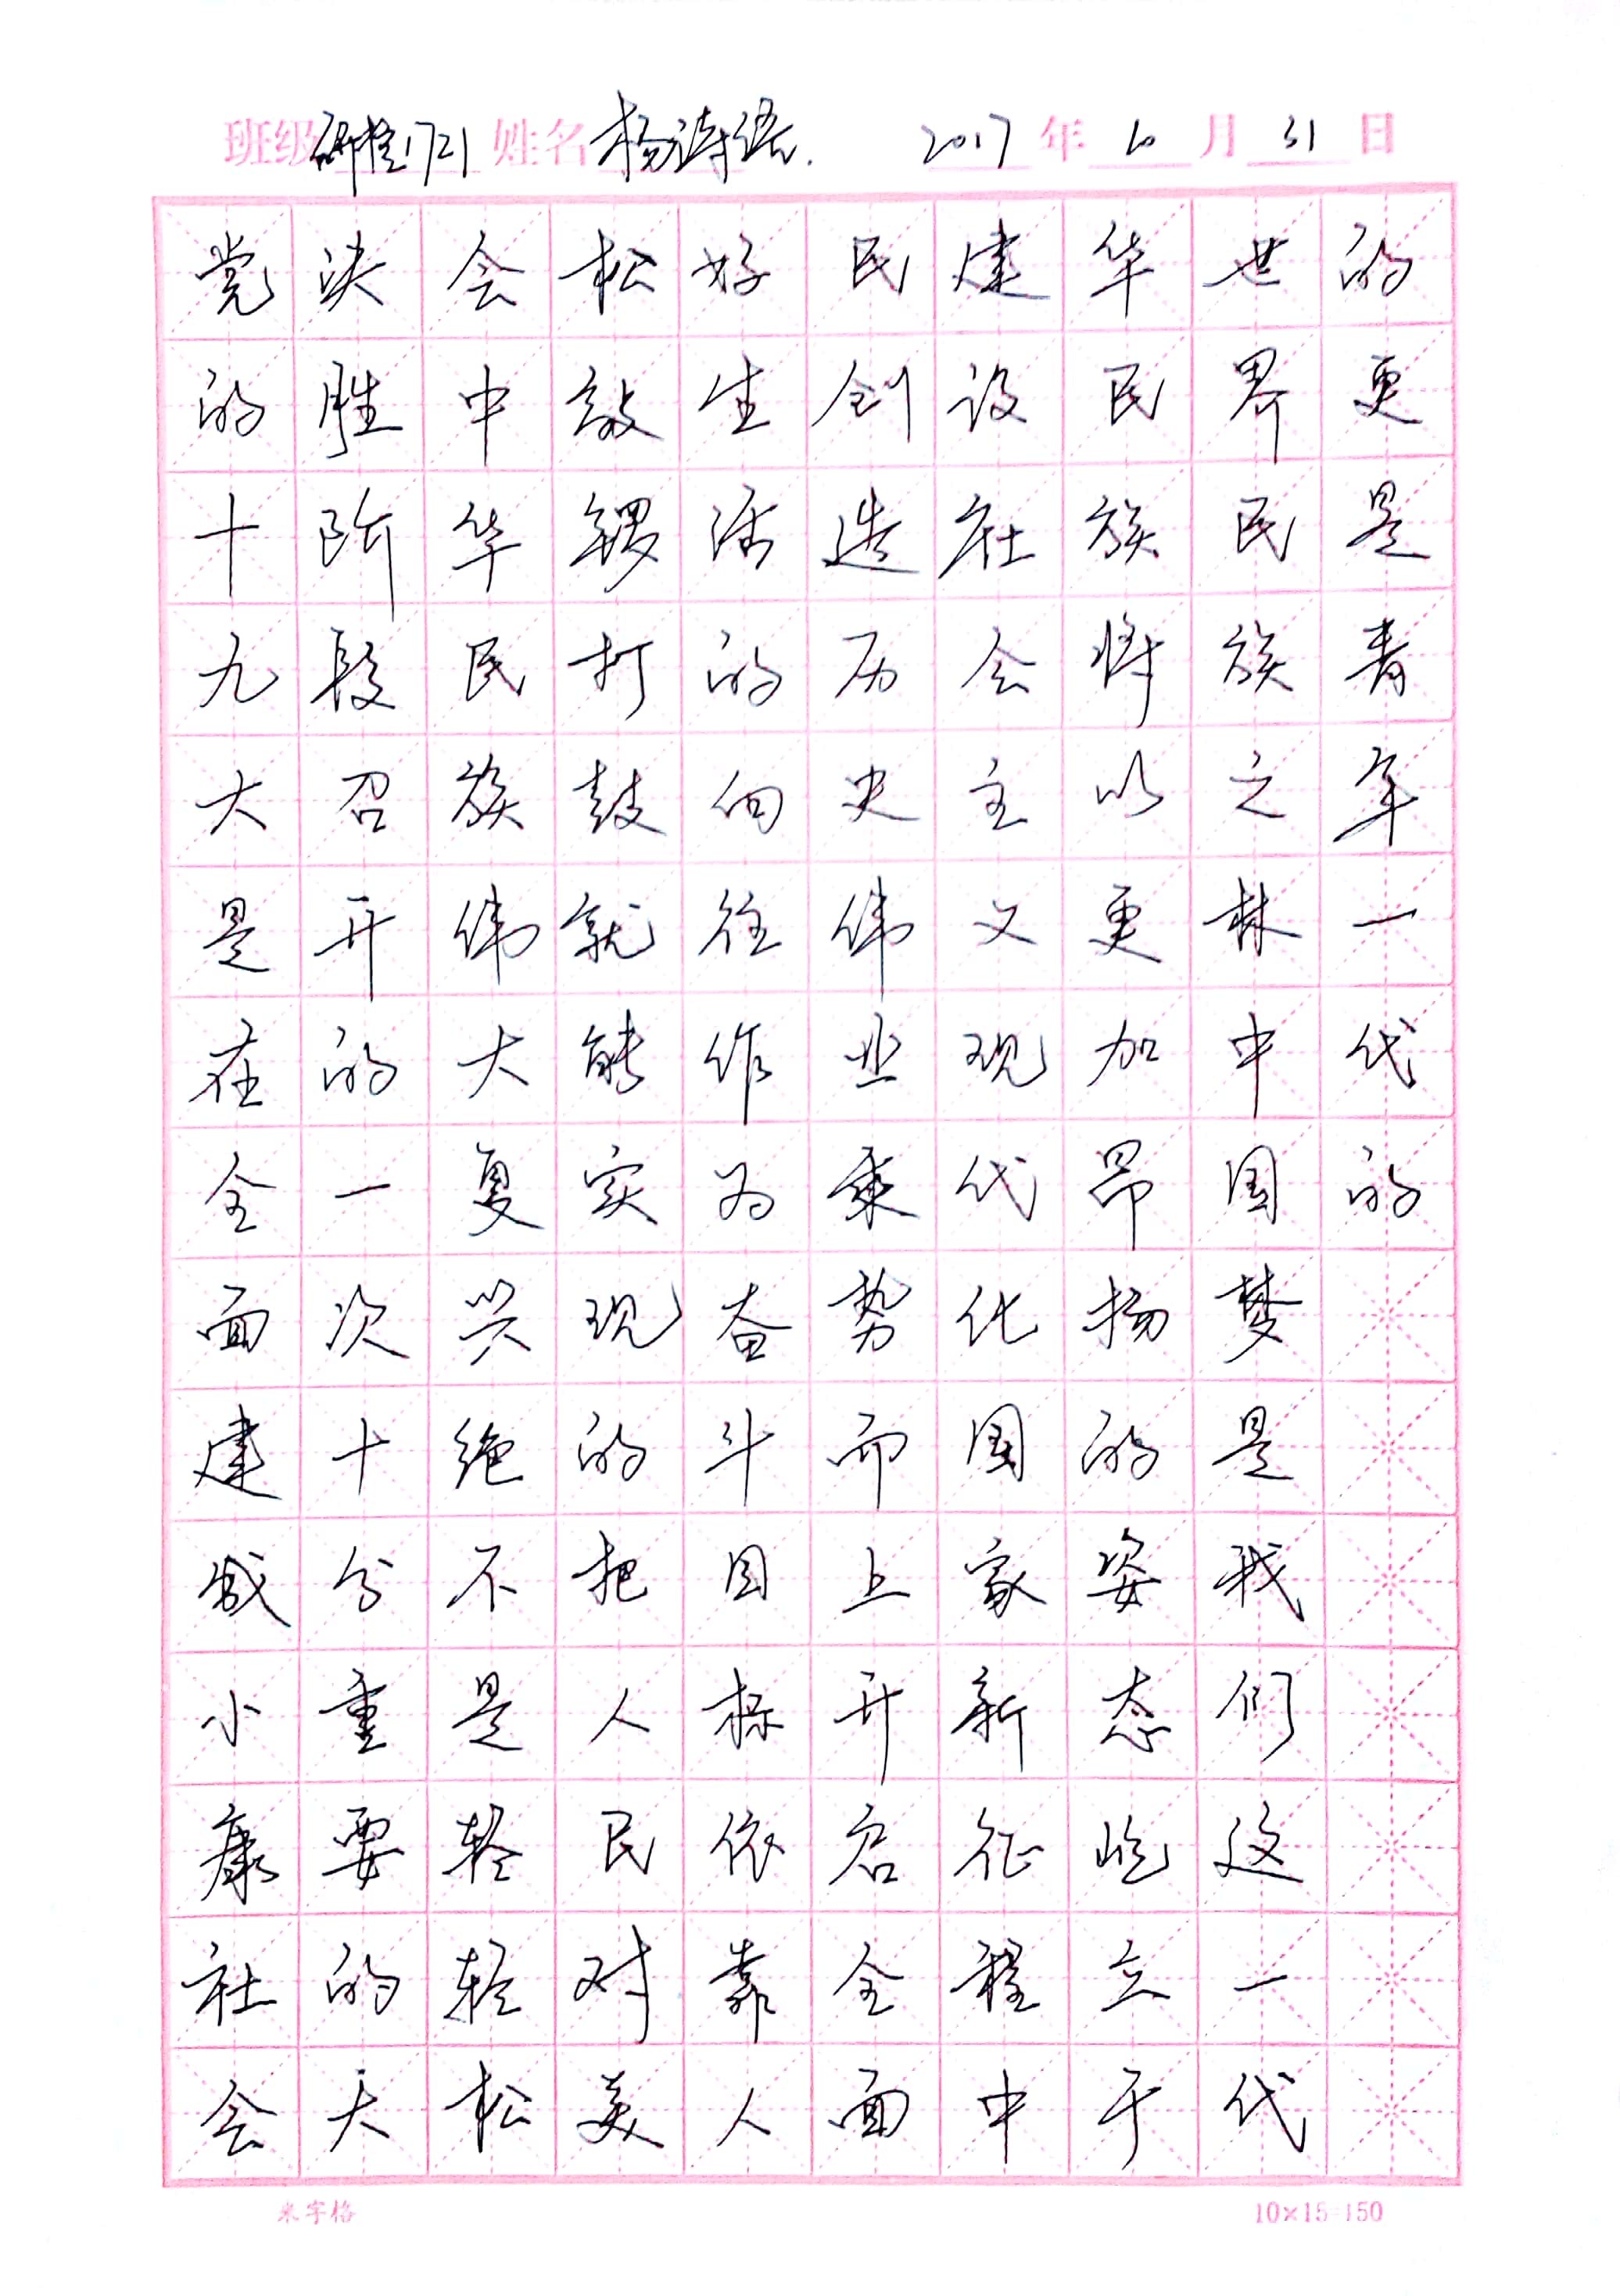 班级 1721 姓名 杨诗语. 2017 年 10 月 31 日
党的十九大是在全面建成小康社会
决胜阶段召开的一次十分重要的大
会中华民族伟大复兴绝不是轻轻松
松敲锣打鼓就能实现的把人民对美
好生活的向往作为奋斗目标依靠人
民创造历史伟业乘势而上开启全面
建设社会主义现代化国家新征程中
华民族将以更加昂扬的姿态屹立于
世界民族之林中国梦是我们这一代
的更是青年一代的
米字格 10×15=150